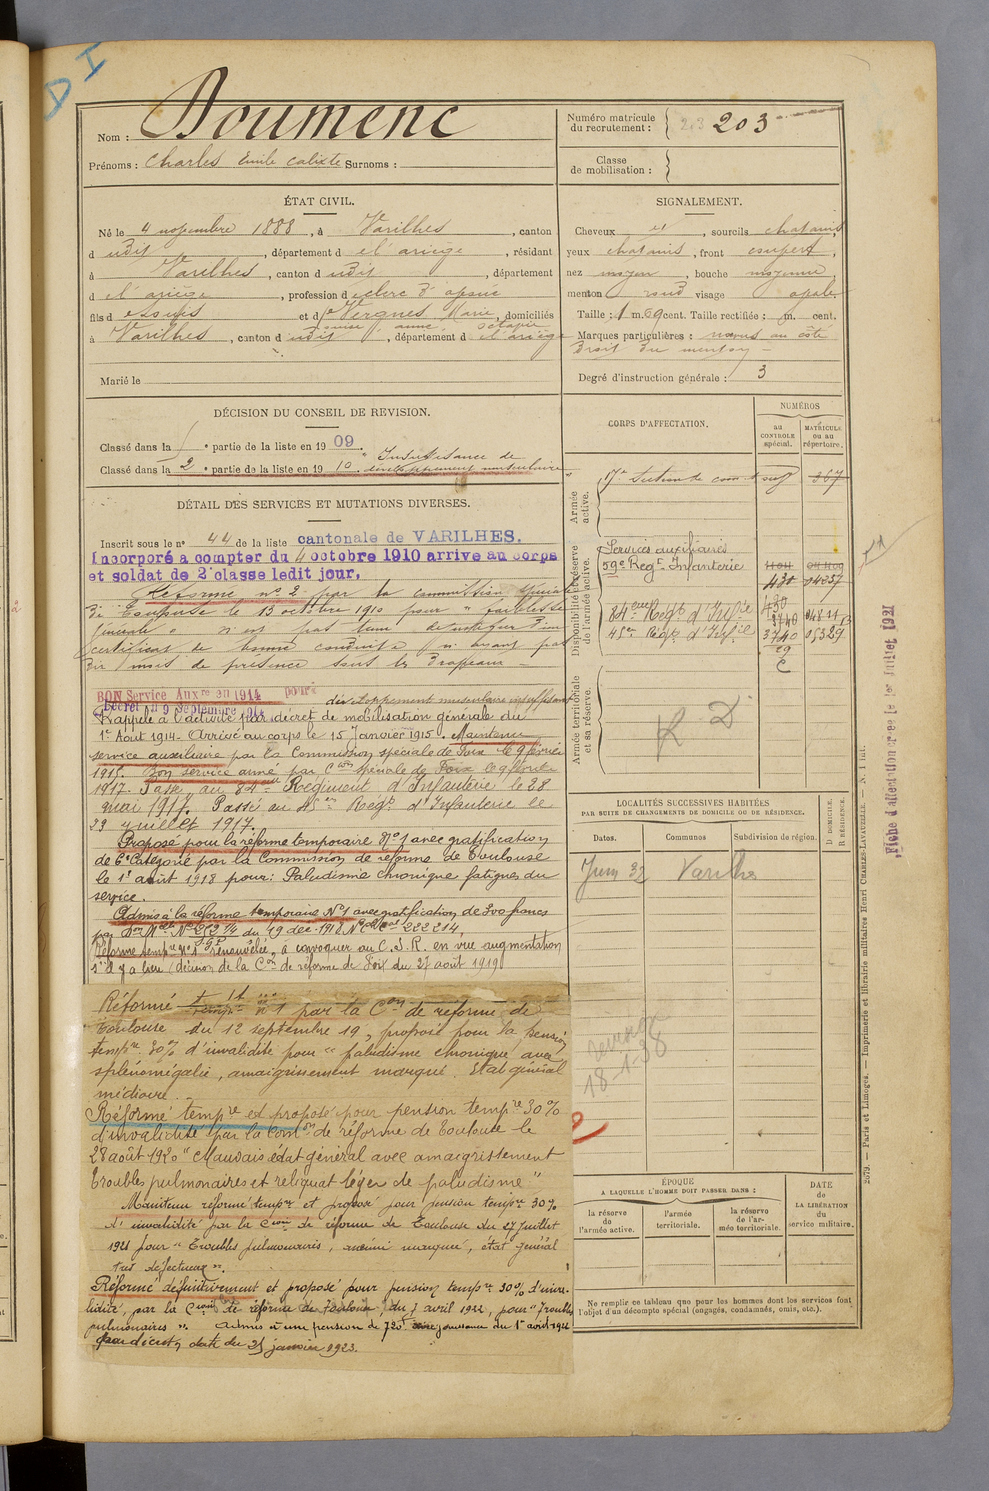 D I
Nom : Doumenc
Prénoms : Charles Emile Calixte Surnoms :
Numéro matricule
du recrutement : 203 203
Classe
de mobilisation :
ÉTAT CIVIL.
Né le 4 novembre 1888, à Varilhes, canton
d udit, département d el'ariège, résidant
à Varilhes, canton d udit, département
d el'ariège, profession d
fils d et de Vergnes Marie, domiciliés
anne octavie
à Varilhes, canton d udit, département d el'ariège
Marié le
SIGNALEMENT.
Cheveux et, sourcils chatains
yeux chatains, front
nez moyen, bouche moyenne,
menton rond visage
Taille : 1 m. 69 cent. Taille rectifiée : m. cent.
Marques particulières : au côté
droit du menton
Degré d'instruction générale : 3
DÉCISION DU CONSEIL DE REVISION.
Classé dans la e partie de la liste en 19 09.
Classé dans la 2 e partie de la liste en 19 10. "Insuffisance de
développement musculaire"
DÉTAIL DES SERVICES ET MUTATIONS DIVERSES.
Inscrit sous le n° 44 de la liste cantonale de VARILHES.
Incorporé a compter du 4 octobre 1910 arrive au corps
et soldat de 2e classe ledit jour.
Réforme n° 2 par la commission spéciale
de le 13 octobre 1910 pour "faiblesse
générale" n'est pas tenu de justifier d'un
certificat de bonne conduite n'ayant pas
six mois de présence sous les drapeaux
BON Service Aux.re en 1914 pour développement musculaire insuffisant
Décret du 9 Septembre 1914
Rappelé à l'activité par décret de mobilisation générale du
1er Août 1914 - Arrivé au corps le 15 Janvier 1915. Maintenu
service auxiliaire par la Commission spéciale de Foix le 9 février
1915. Bon service armé par Con spéciale de Foix le 9 février
1917. Passé au 84e Régiment d'Infanterie le 28
mai 1917. Passé au 45e Régt d'Infanterie le
23 juillet 1917.
Proposé pour la réforme temporaire N°1 avec gratification
de 6e Catégorie par la Commission de réforme de Toulouse
le 1er août 1918 pour : Paludisme chronique fatigues du
service.
Admis à la réforme temporaire N°1 avec gratification de 300 francs
par Don Mlle N° 252 74 du 19 déc. 1918 222 214.
Réforme tempre n°1 renouvelée, à convoquer au C.S.R. en vue augmentation
s'il y a lieu (décision de la Con de réforme de Foix du 27 août 1919)
Réformé tempre n° 1 par la Con de réforme de
Toulouse du 12 septembre 19, proposé pour la pension
tempre 30% d'invalidité pour "paludisme chronique avec
splénomégalie, amaigrissement marqué. Etat général
médiocre.
Réformé tempre et proposé pour pension tempre 30%
d'invalidité par la Comon de réforme de Toulouse le
28 août 1920 "Mauvais état général avec amaigrissement
Troubles pulmonaires et reliquat léger de paludisme"
Maintenu réformé tempre et proposé pour pension tempre 30%
d'invalidité par la Cion de réforme de Toulouse du 27 juillet
1921 pour "Troubles pulmonaires, anémie marquée, état général
très défectueux".
Réformé définitivement et proposé pour pension tempre 30% d'inva-
lidité, par la Cion de réforme de Toulouse du 7 avril 1922, pour "Troubles
pulmonaires". Admis à une pension de 720f avec jouissance du 1er août 1921
par décret, date du 25 janvier 1923.
CORPS D'AFFECTATION.
NUMÉROS
au
CONTROLE
spécial.
MATRICULE
ou au
répertoire.
Armée
active.
17e Section de com 367
Disponibilité et réserve
de l'armée active.
Services auxiliaires
59e Regt Infanterie 430 04237
84eme Regt d'Infie 3740
45e Regt d'Infie 3740 05329
Armée territoriale
et sa réserve.
R D
LOCALITÉS SUCCESSIVES HABITÉES
PAR SUITE DE CHANGEMENTS DE DOMICILE OU DE RÉSIDENCE.
Dates. Communes Subdivision de région. D DOMICILE. R RÉSIDENCE.
Juin 32 Varilhes
18-1-38
ÉPOQUE
A LAQUELLE L'HOMME DOIT PASSER DANS :
la réserve
de
l'armée active.
l'armée
territoriale.
la réserve
de l'ar-
mée territoriale.
DATE
de
LA LIBÉRATION
du
service militaire.
Ne remplir ce tableau que pour les hommes dont les services font
l'objet d'un décompte spécial (engagés, condamnés, omis, etc.).
Fiche d'affectation créée le 1er Juillet 1921
2679. — Paris et Limoges. — Imprimerie et librairie militaires Henri CHARLES-LAVAUZELLE. — N. 1 int.